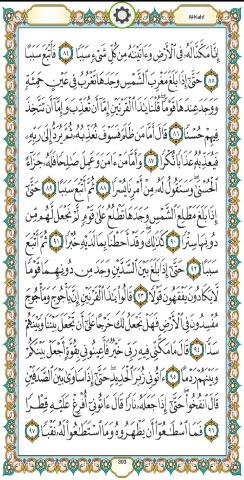 Al-Kahf
إِنَّا مَكَّنَّا لَهُۥ فِى ٱلْأَرْضِ وَءَاتَيْنَٰهُ مِن كُلِّ شَىْءٍ سَبَبًا ٨٤ فَأَتْبَعَ سَبَبًا
٨٥ حَتَّىٰٓ إِذَا بَلَغَ مَغْرِبَ ٱلشَّمْسِ وَجَدَهَا تَغْرُبُ فِى عَيْنٍ حَمِئَةٍ
وَوَجَدَ عِندَهَا قَوْمًا ۗ قُلْنَا يَٰذَا ٱلْقَرْنَيْنِ إِمَّآ أَن تُعَذِّبَ وَإِمَّآ أَن تَتَّخِذَ
فِيهِمْ حُسْنًا ٨٦ قَالَ أَمَّا مَن ظَلَمَ فَسَوْفَ نُعَذِّبُهُۥ ثُمَّ يُرَدُّ إِلَىٰ رَبِّهِۦ
فَيُعَذِّبُهُۥ عَذَابًا نُّكْرًا ٨٧ وَأَمَّا مَنْ ءَامَنَ وَعَمِلَ صَٰلِحًا فَلَهُۥ جَزَآءً
ٱلْحُسْنَىٰ ۖ وَسَنَقُولُ لَهُۥ مِنْ أَمْرِنَا يُسْرًا ٨٨ ثُمَّ أَتْبَعَ سَبَبًا ٨٩ حَتَّىٰٓ
إِذَا بَلَغَ مَطْلِعَ ٱلشَّمْسِ وَجَدَهَا تَطْلُعُ عَلَىٰ قَوْمٍ لَّمْ نَجْعَل لَّهُم مِّن
دُونِهَا سِتْرًا ٩٠ كَذَٰلِكَ وَقَدْ أَحَطْنَا بِمَا لَدَيْهِ خُبْرًا ٩١ ثُمَّ أَتْبَعَ
سَبَبًا ٩٢ حَتَّىٰٓ إِذَا بَلَغَ بَيْنَ ٱلسَّدَّيْنِ وَجَدَ مِن دُونِهِمَا قَوْمًا
لَّا يَكَادُونَ يَفْقَهُونَ قَوْلًا ٩٣ قَالُوا۟ يَٰذَا ٱلْقَرْنَيْنِ إِنَّ يَأْجُوجَ وَمَأْجُوجَ
مُفْسِدُونَ فِى ٱلْأَرْضِ فَهَلْ نَجْعَلُ لَكَ خَرْجًا عَلَىٰٓ أَن تَجْعَلَ بَيْنَنَا وَبَيْنَهُمْ
سَدًّا ٩٤ قَالَ مَا مَكَّنِّى فِيهِ رَبِّى خَيْرٌ فَأَعِينُونِى بِقُوَّةٍ أَجْعَلْ بَيْنَكُمْ
وَبَيْنَهُمْ رَدْمًا ٩٥ ءَاتُونِى زُبَرَ ٱلْحَدِيدِ ۖ حَتَّىٰٓ إِذَا سَاوَىٰ بَيْنَ ٱلصَّدَفَيْنِ
قَالَ ٱنفُخُوا۟ ۖ حَتَّىٰٓ إِذَا جَعَلَهُۥ نَارًا قَالَ ءَاتُونِىٓ أُفْرِغْ عَلَيْهِ قِطْرًا
٩٦ فَمَا ٱسْطَٰعُوٓا۟ أَن يَظْهَرُوهُ وَمَا ٱسْتَطَٰعُوا۟ لَهُۥ نَقْبًا ٩٧
303